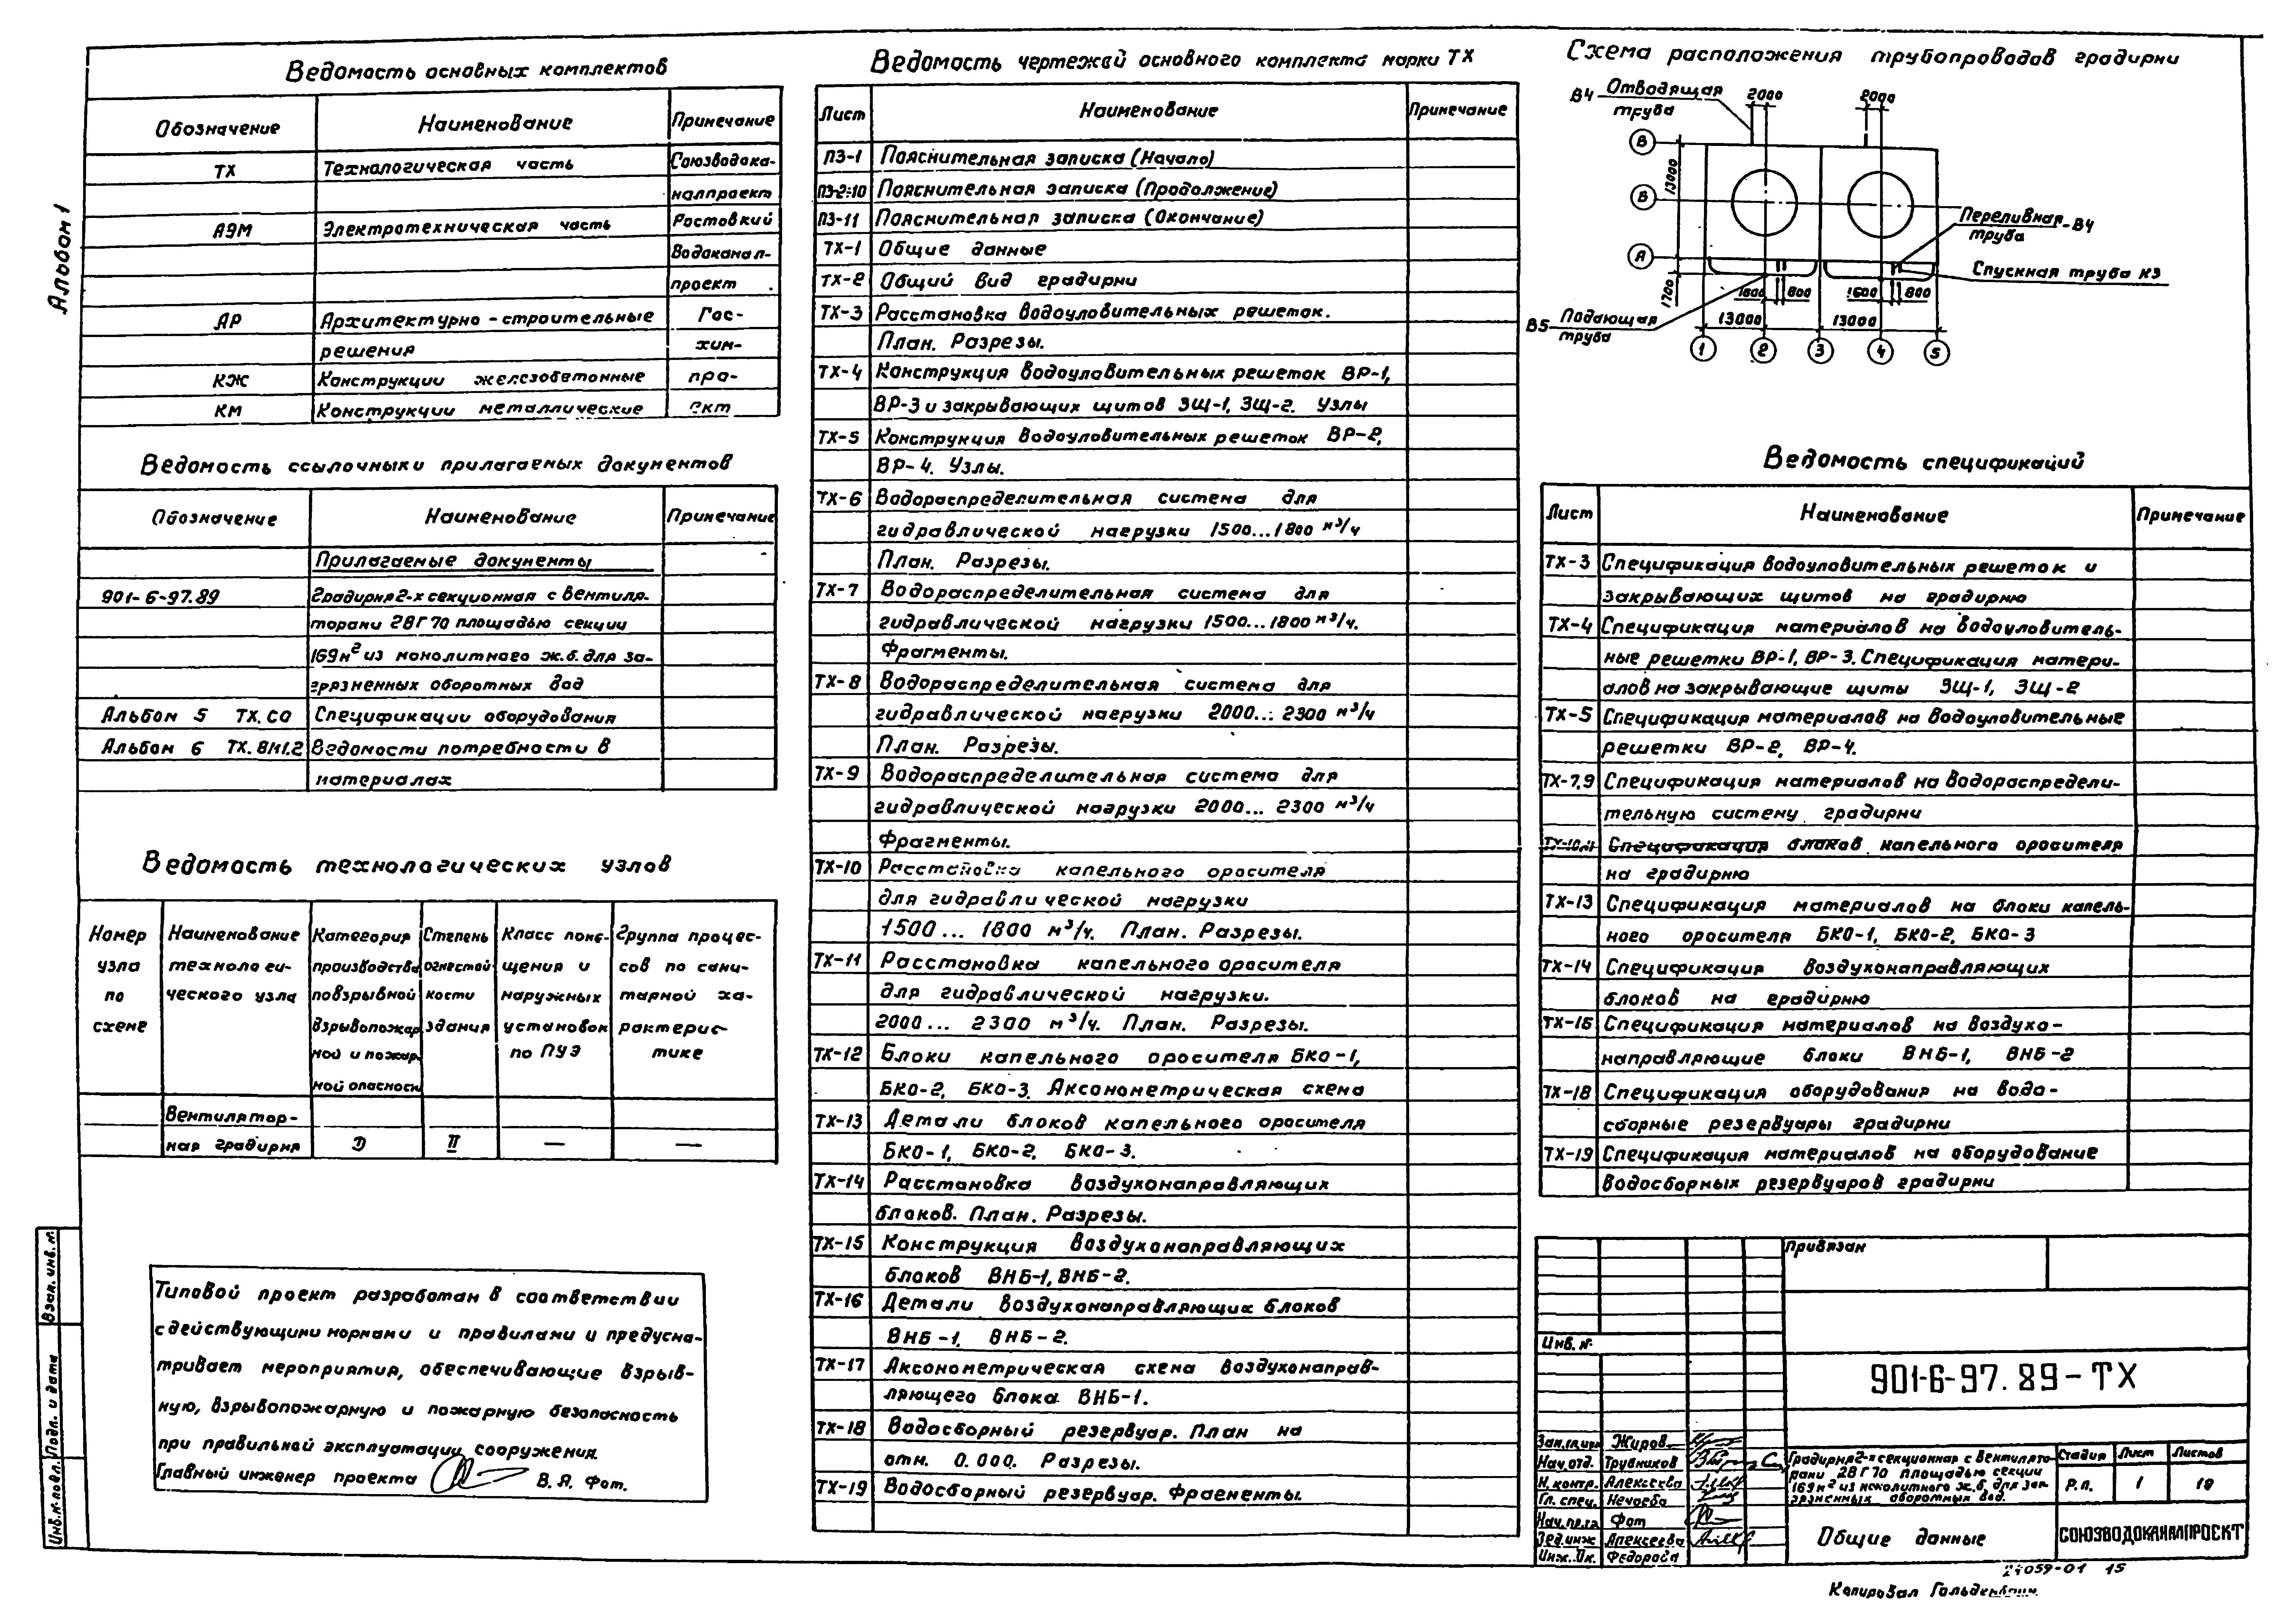 Альбом 1
Ведомость основных комплектов
Обозначение Наименование Примечание
ТХ Технологическая часть Союзводока-
налпроект
АЭМ Электротехническая часть Ростовкий
Водоканал-
проект
АР Архитектурно - строительные Гос-
решения хим-
КЖ Конструкции железобетонные про-
КМ Конструкции металлические ект
Ведомость ссылочных и прилагаемых документов
Обозначение Наименование Примечание
Прилагаемые документы
901-6-97.89 Градирня 2-х секционная с вентиля-
торами 2ВГ 70 площадью секции
169 м² из монолитного ж.б. для за-
грязненных оборотных вод
Альбом 5 ТХ.СО Спецификации оборудования
Альбом 6 ТХ.ВМ1.2 Ведомости потребности в
материалах
Ведомость технологических узлов
Номер узла по схеме
Наименование техноло ги- ческого узла
Категория производства повзрывной взрывопожар ной и пожар ной опасност
Степень огнестой- кости здания
Класс поме- щения и наружных установок по ПУЭ
Группа процес- сов по сани- тарной ха- рактерис- тике
Вентилятор-
ная градирня Д II — —
Типовой проект разработан в соответствии
с действующими нормами и правилами и предусма-
тривает мероприятия, обеспечивающие взрыв-
ную, взрывопожарную и пожарную безопасность
при правильной эксплуатации сооружения.
Главный инженер проекта В. Я. Фот.
Взам. инв. №
Подп. и дата
Инв. № подл.
Ведомость чертежей основного комплекта марки ТХ
Лист Наименование Примечание
ПЗ-1 Пояснительная записка (Начало)
ПЗ-2÷10 Пояснительная записка (Продолжение)
ПЗ-11 Пояснительная записка (Окончание)
ТХ-1 Общие данные
ТХ-2 Общий вид градирни
ТХ-3 Расстановка водоуловительных решеток.
План. Разрезы.
ТХ-4 Конструкция водоуловительных решеток ВР-1,
ВР-3 и закрывающих щитов ЗЩ-1, ЗЩ-2. Узлы
ТХ-5 Конструкция водоуловительных решеток ВР-2,
ВР-4. Узлы.
ТХ-6 Водораспределительная система для
гидравлической нагрузки 1500...1800 м³/ч
План. Разрезы.
ТХ-7 Водораспределительная система для
гидравлической нагрузки 1500...1800 м³/ч.
Фрагменты.
ТХ-8 Водораспределительная система для
гидравлической нагрузки 2000... 2300 м³/ч
План. Разрезы.
ТХ-9 Водораспределительная система для
гидравлической нагрузки 2000... 2300 м³/ч
Фрагменты.
ТХ-10 Расстановка капельного оросителя
для гидравлической нагрузки
1500... 1800 м³/ч. План. Разрезы.
ТХ-11 Расстановка капельного оросителя
для гидравлической нагрузки.
2000... 2300 м³/ч. План. Разрезы.
ТХ-12 Блоки капельного оросителя БКО-1,
БКО-2, БКО-3. Аксонометрическая схема
ТХ-13 Детали блоков капельного оросителя
БКО-1, БКО-2, БКО-3.
ТХ-14 Расстановка воздухонаправляющих
блоков. План. Разрезы.
ТХ-15 Конструкция воздухонаправляющих
блоков ВНБ-1, ВНБ-2.
ТХ-16 Детали воздухонаправляющих блоков
ВНБ-1, ВНБ-2.
ТХ-17 Аксонометрическая схема воздухонаправ-
ляющего блока ВНБ-1.
ТХ-18 Водосборный резервуар. План на
отм. 0.000. Разрезы.
ТХ-19 Водосборный резервуар. Фрагменты.
Схема расположения трубопроводов градирни
В4 Отводящая труба 2000 2000
В
Б
А
13000
1700
Переливная труба -В4
Спускная труба К3
1600 800 1600 800
В5 Подающая труба
13000 13000
1 2 3 4 5
Ведомость спецификаций
Лист Наименование Примечание
ТХ-3 Спецификация водоуловительных решеток и
закрывающих щитов на градирню
ТХ-4 Спецификация материалов на водоуловитель-
ные решетки ВР-1, ВР-3. Спецификация матери-
алов на закрывающие щиты ЗЩ-1, ЗЩ-2
ТХ-5 Спецификация материалов на водоуловительные
решетки ВР-2, ВР-4.
ТХ-7,9 Спецификация материалов на водораспредели-
тельную систему градирни
ТХ-10,11 Спецификация блоков капельного оросителя
на градирню
ТХ-13 Спецификация материалов на блоки капель-
ного оросителя БКО-1, БКО-2, БКО-3
ТХ-14 Спецификация воздухонаправляющих
блоков на градирню
ТХ-16 Спецификация материалов на воздухо-
направляющие блоки ВНБ-1, ВНБ-2
ТХ-18 Спецификация оборудования на водо-
сборные резервуары градирни
ТХ-19 Спецификация материалов на оборудование
водосборных резервуаров градирни
Привязан
Инв. №
901-6-97.89-ТХ
Зам.гл.инж Жиров
Нач.отд. Трубников
Н.контр. Алексеева
Гл. спец. Нечаева
Нач.пр.гр Фот
Вед.инж Алексеева
Инж. IIк. Федорова
Градирня 2-х секционная с вентилято-
рами 2ВГ 70 площадью секции
169 м² из монолитного ж.б. для заг-
рязненных оборотных вод.
Стадия Лист Листов
Р.п. 1 19
Общие данные
СОЮЗВОДОКАНАЛПРОЕКТ
24059-01 15
Копировал